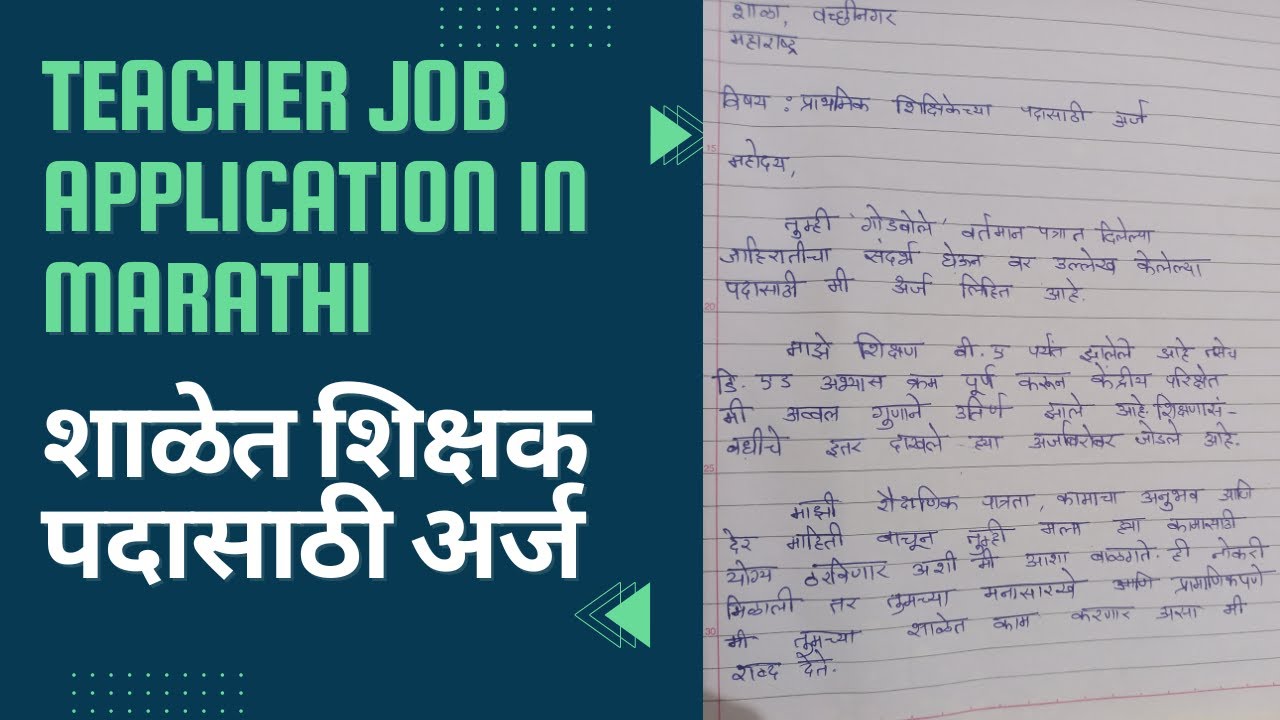 TEACHER JOB
APPLICATION IN
MARATHI
शाळेत शिक्षक
पदासाठी अर्ज
शाळा, वच्छीनगर
महाराष्ट्र
विषय : प्राथमिक शिक्षिकेच्या पदासाठी अर्ज
महोदय,
तुम्ही 'गोडबोले' वर्तमान पत्रात दिलेल्या
जाहिरातीचा संदर्भ घेऊन वर उल्लेख केलेल्या
पदासाठी मी अर्ज लिहित आहे.
माझे शिक्षण बी.ए पर्यंत झालेले आहे तसेच
डि. एड अभ्यास क्रम पूर्ण करून केंद्रीय परिक्षेत
मी अव्वल गुणाने उतिर्ण झाले आहे. शिक्षणासं-
बधीचे इतर दाखले ह्या अर्जाबरोबर जोडले आहे.
माझी शैक्षणिक पात्रता, कामाचा अनुभव आणि
देर माहिती वाचून तुम्ही मला ह्या कामासाठी
योग्य ठरविणार अशी मी आशा बाळगते. ही नोकरी
मिळाली तर तुमच्या मनासारखे आणि प्रामाणिकपणे
मी तुमच्या शाळेत काम करणार असा मी
शब्द देते.
15
20
25
30